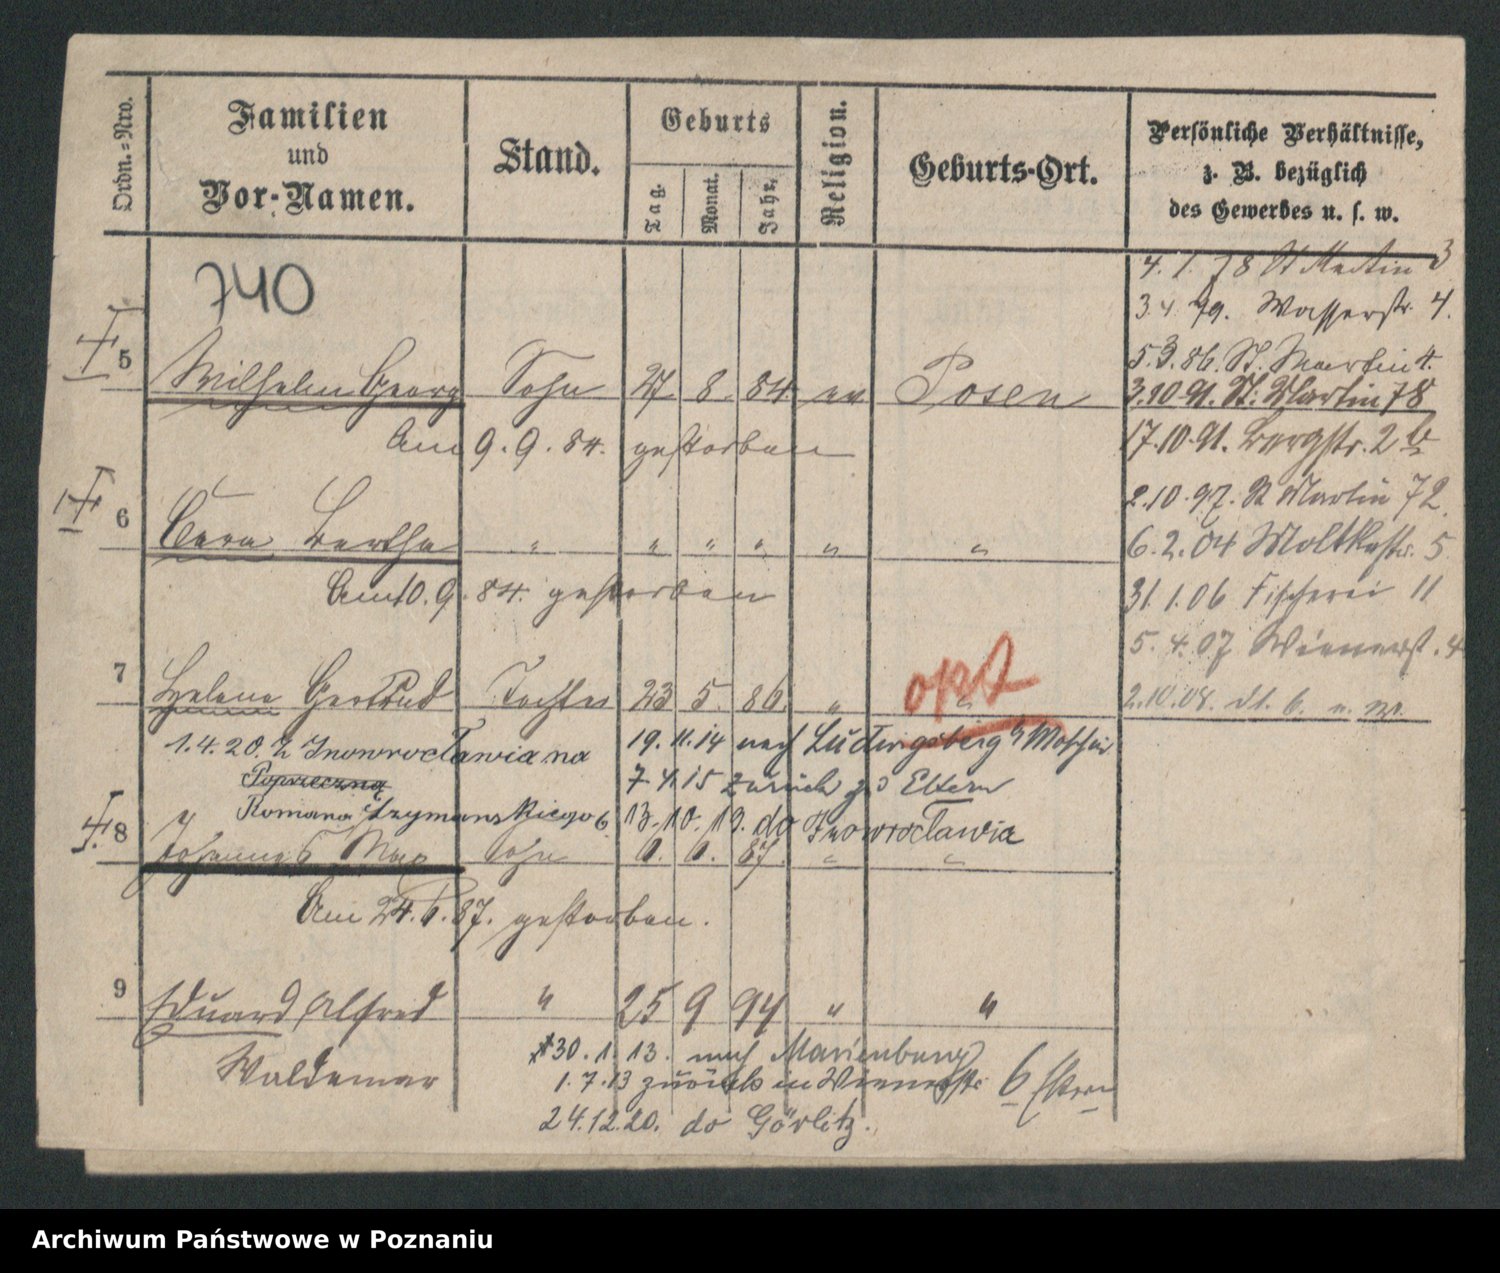 Ordn.=Nro.
Familien
und
Vor-Namen.
Stand.
Geburts
Tag.
Monat.
Jahr.
Religion.
Geburts-Ort.
Persönliche Verhältnisse,
z. B. bezüglich
des Gewerbes u. s. w.
740
4. 1. 78 St Martin 3
3. 4. 79. Wasserstr. 4.
5. 3. 86. St. Martin 4.
3. 10 91. St. Martin 78
17. 10. 91. Bergstr. 2 b
2. 10. 97. St Martin 72.
6. 2. 04 Moltkestr. 5
31. 1. 06 Fischerei 11
5. 4. 07 Wienerst. 4
2. 10. 08. dt. 6.
5 Wilhelm Georg Sohn 27 8. 84. ev Posen
Am 9. 9. 84. gestorben
6 Bertha " " " " " "
Am 10. 9. 84. gestorben
7 Helene Gertrud Tochter 23 5. 86. " "
opt
1. 4. 20. z Inowrocławia na
Poprzeczną
Romana Szymańskiego 6
19. 11. 14 nach Ludwigsberg b/ Moschin
7. 4. 15 zurück z. d Eltern
13. 10. 19. do Inowrocławia
8 Johannes Max Sohn 6. 6. 87 " "
Am 24. 6. 87. gestorben.
9 Eduard Alfred " 25 9 94 " "
Waldemar
30. 1. 13. nach Marienburg
1. 7. 13 zurück in Wienerstr. 6 Eltern
24. 12. 20. do Görlitz.
Archiwum Państwowe w Poznaniu